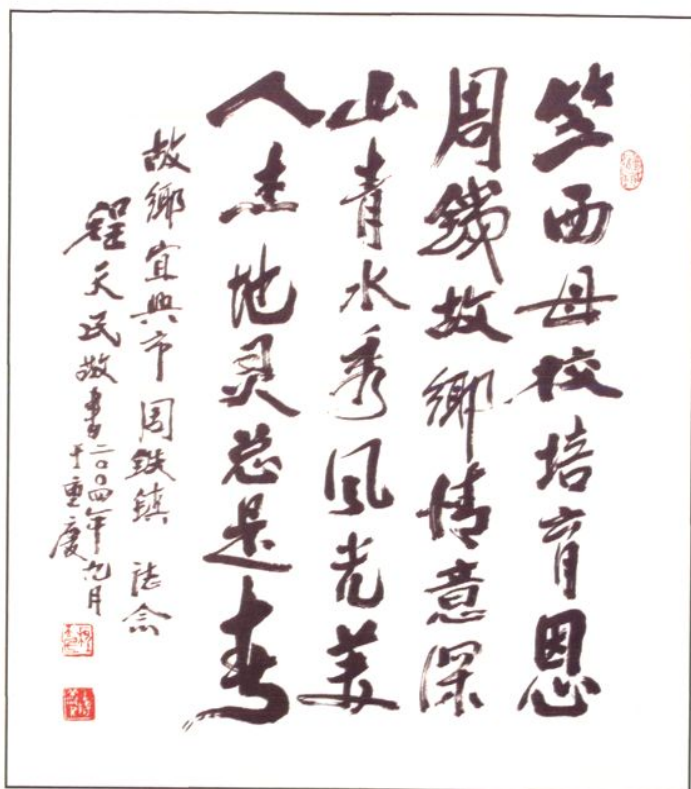 竺西母校培育恩
周鐵故鄉情意深
山青水秀风光美
人杰地灵总是春
故鄉宜興市周鉄鎮 誌念
程天民敬書二〇〇四年九月
于重慶